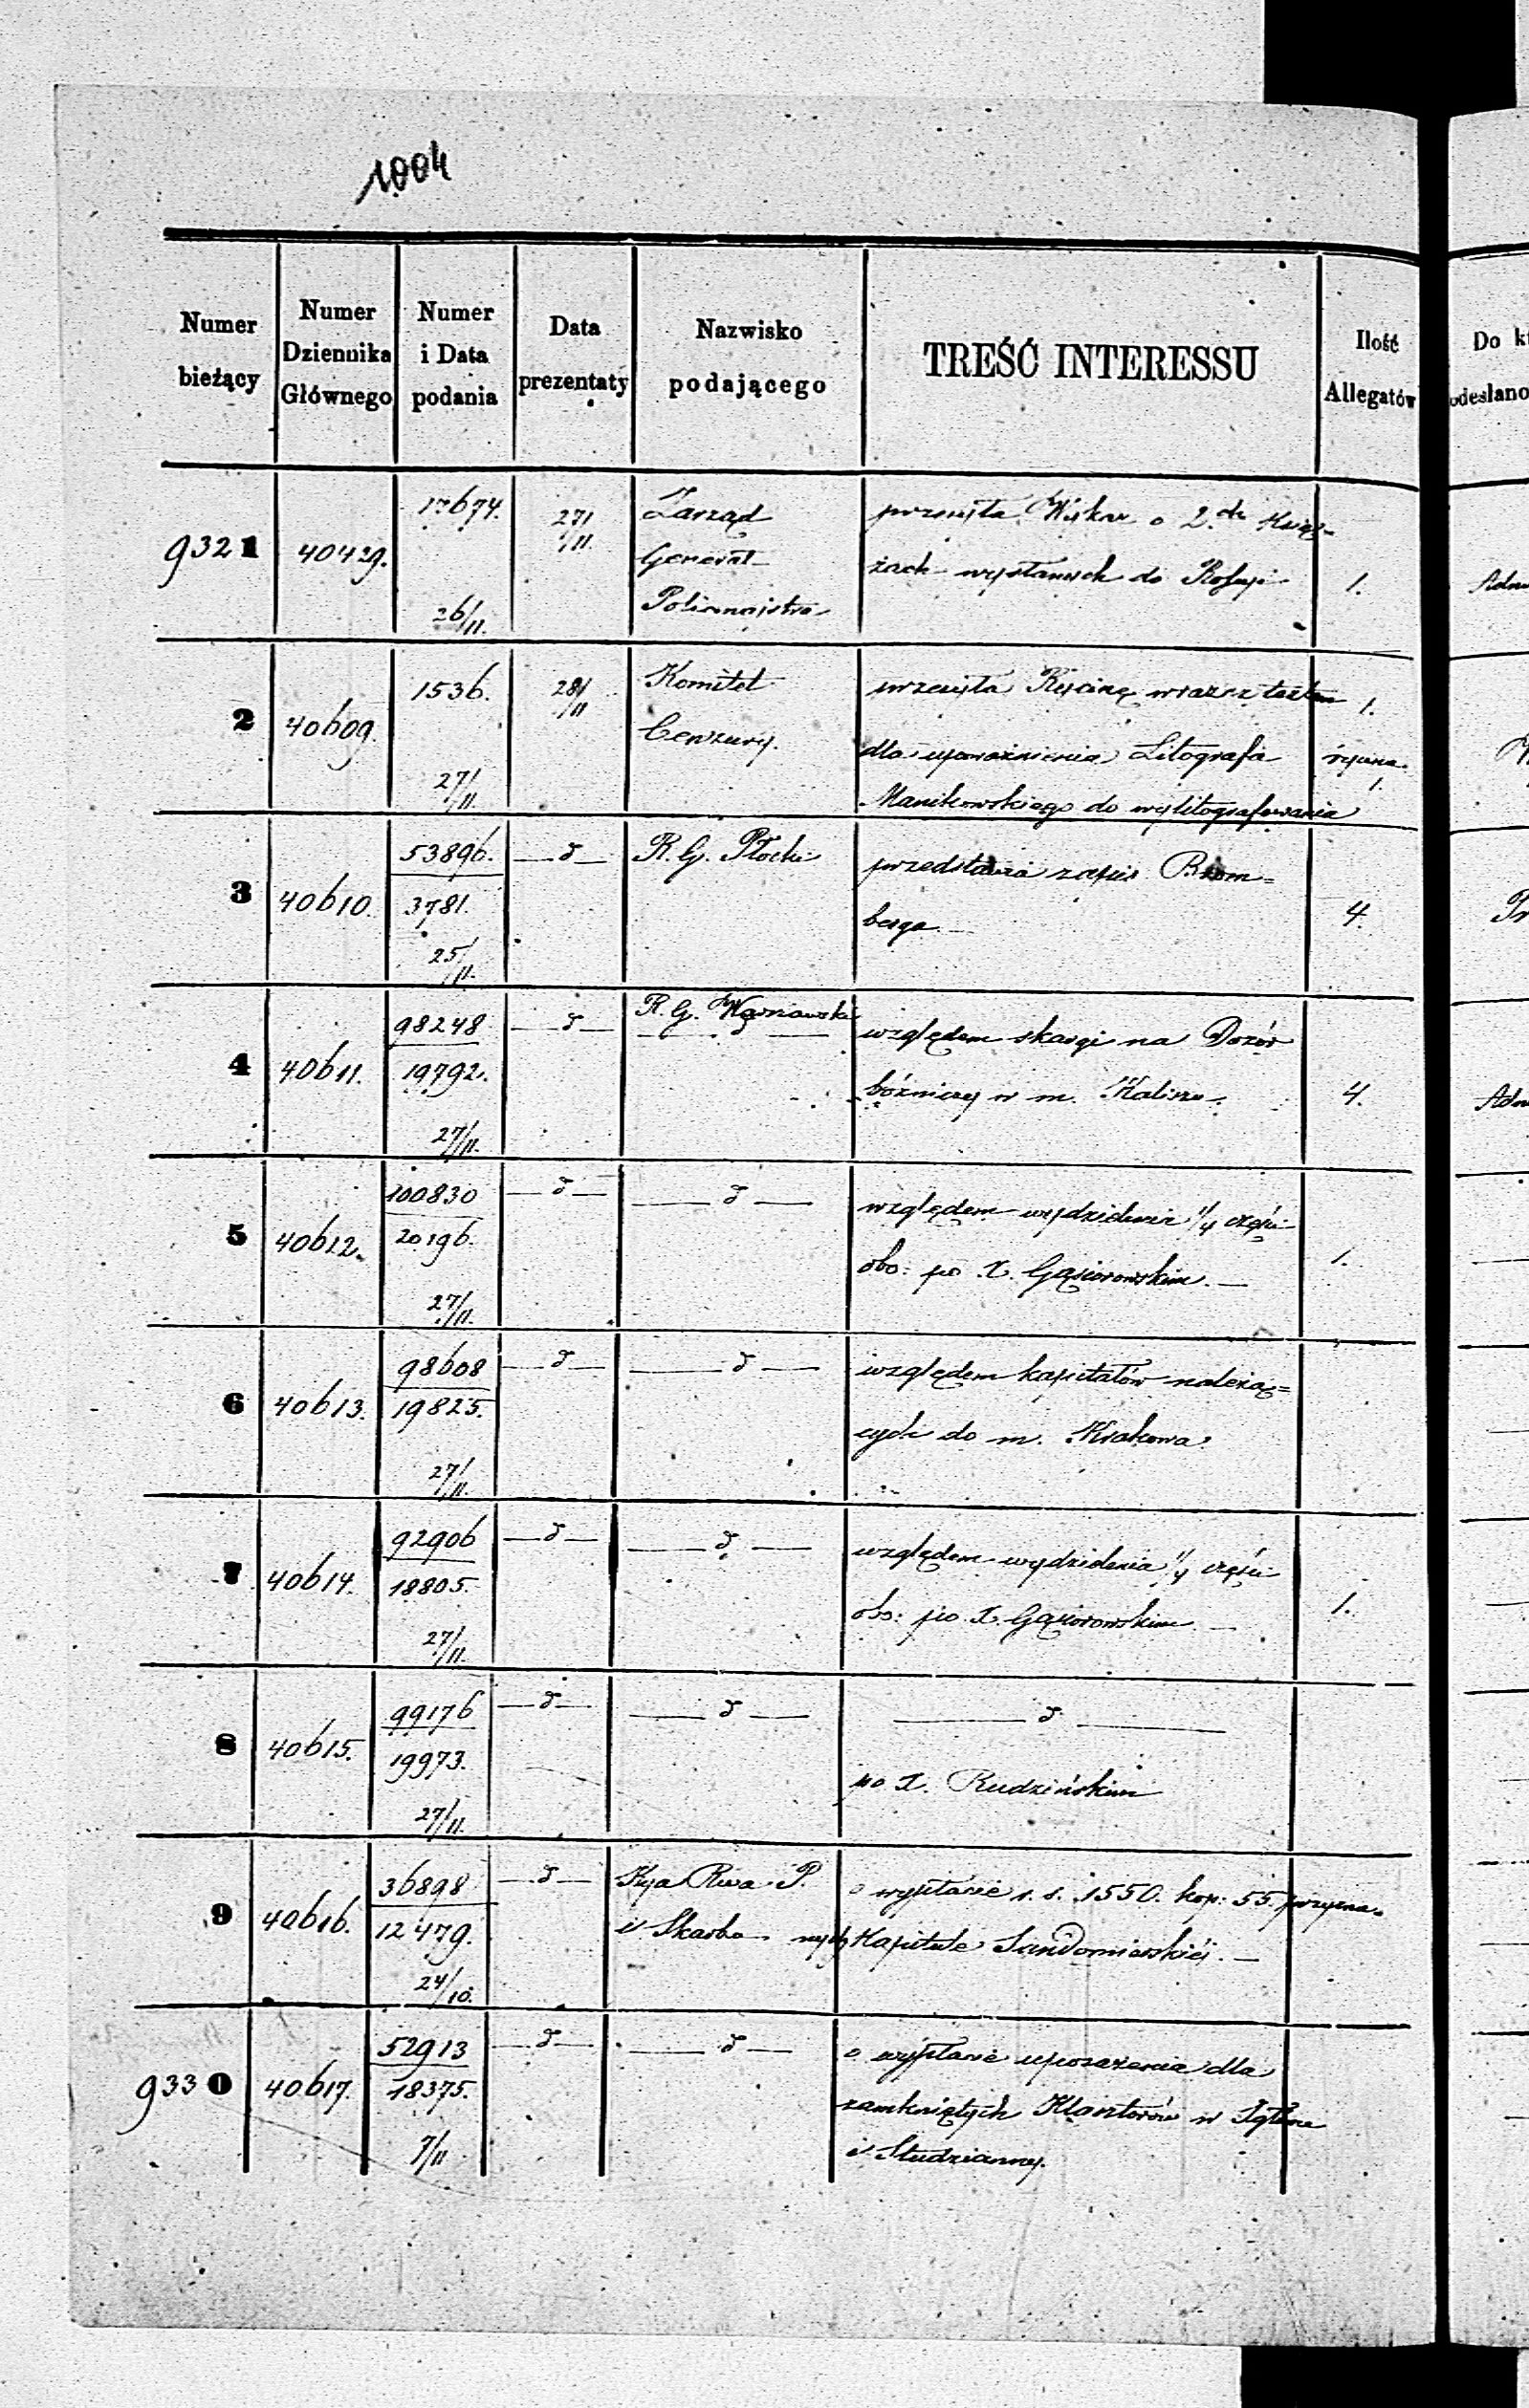 1004
Numer bieżący
Numer Dziennika Głównego
Numer i Data podania
Data prezentaty
Nazwisko podającego
TREŚĆ INTERESSU
Ilość Allegatów
Do
odesłano
9321 40429. 17674. 26/11. 27/11. Zarząd General Policmajstra
przesyła Wykaz o 2.ch Księ-
żach wysłanych do Rossyi 1.
2 40609. 1536. 27/11. 28/11 Komitet Cenzury.
przesyła Rycinę wraz z
dla upoważnienia Litografa
Manikowskiego do wylitografowania
1.
rycina
1.
3 40610. 53896. 3781. 25/11. — d — R. G. Płocki
przedstawia zapis Brom=
berga. — 4.
4 40611. 98248 19792. 27/11. — d — R. G. Warszawski — d —
względem skargi na Dozór
bóżniczy w m. Kaliszu. 4.
5 40612. 100830 20196. 27/11. — d — — d —
względem wydzielenia 1/4 części
obo: po X. Gąsiorowskim. — 1.
6 40613. 98608 19825. 27/11. — d — — d —
względem kapitałów należą=
cych do m. Krakowa.
7 40614. 92906 18805. 27/11. — d — — d —
względem wydzielenia 1/4 części
obo: po X. Gąsiorowskim — 1.
8 40615. 99176 19973. 27/11. — d — — d — — d —
po X. Rudzińskim
9 40616. 36898 12479. 24/10. — d — Kyа Rwa P. i Skarbu
o wypłacie r. s. 1550. kop: 55. przyzna-
nych Kapitule Sandomierskiéj. —
9330 40617. 52913 18375. 7/11 — d — — d —
o wypłacie uposażenia dla
zamkniętych Klasztorów w
i Studzianny.